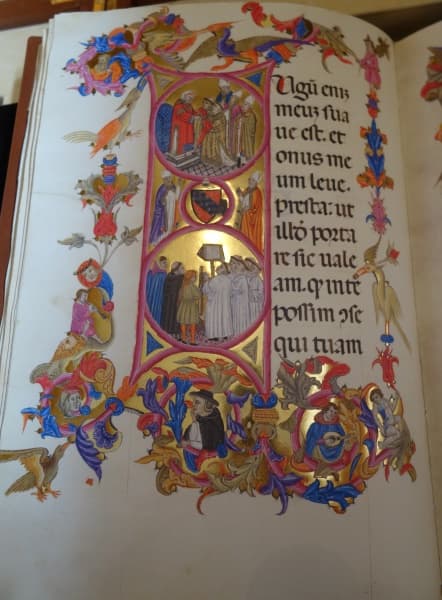 Iugū enīꝫ
meuꝫ sua
ue est. et
onus me
um leue.
presta: ut
illð porta
re sic uale
am.
possim ꝯse
qui tuam